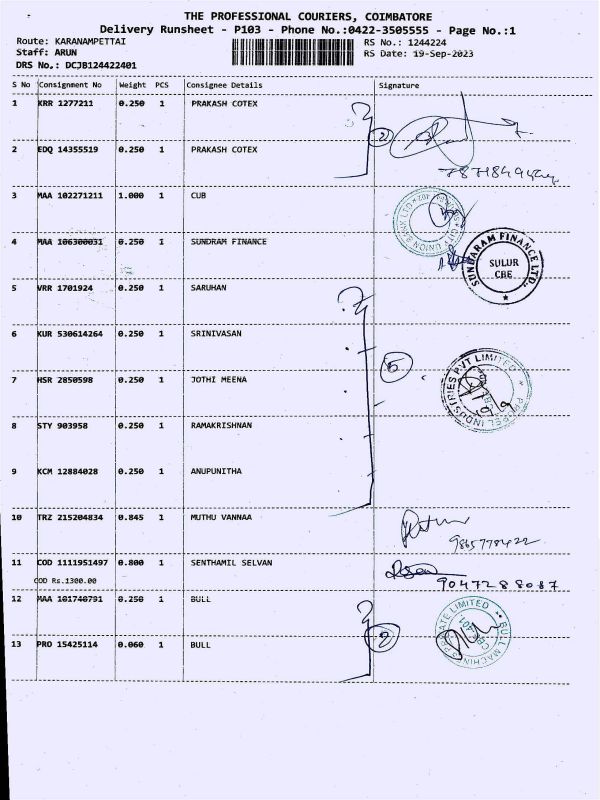 THE PROFESSIONAL COURIERS, COIMBATORE
Delivery Runsheet - P103 - Phone No.:0422-3505555 - Page No.:1
Route: KARANAMPETTAI RS No.: 1244224
Staff: ARUN RS Date: 19-Sep-2023
DRS No.: DCJB124422401
S No Consignment No Weight PCS Consignee Details Signature
1 KRR 1277211 0.250 1 PRAKASH COTEX
2
2 EDQ 14355519 0.250 1 PRAKASH COTEX
3 MAA 102271211 1.000 1 CUB
4 MAA 106300031 0.250 1 SUNDRAM FINANCE
SUNDARAM FINANCE LTD.,
SULUR
CBE
5 VRR 1701924 0.250 1 SARUHAN
6 KUR 530614264 0.250 1 SRINIVASAN
5
7 HSR 2850598 0.250 1 JOTHI MEENA
8 STY 903958 0.250 1 RAMAKRISHNAN
9 KCM 12884028 0.250 1 ANUPUNITHA
10 TRZ 215204834 0.845 1 MUTHU VANNAA
9865778422
11 COD 1111951497 0.800 1 SENTHAMIL SELVAN
9047288087
COD Rs.1300.00
12 MAA 101740791 0.250 1 BULL
2
13 PRO 15425114 0.060 1 BULL